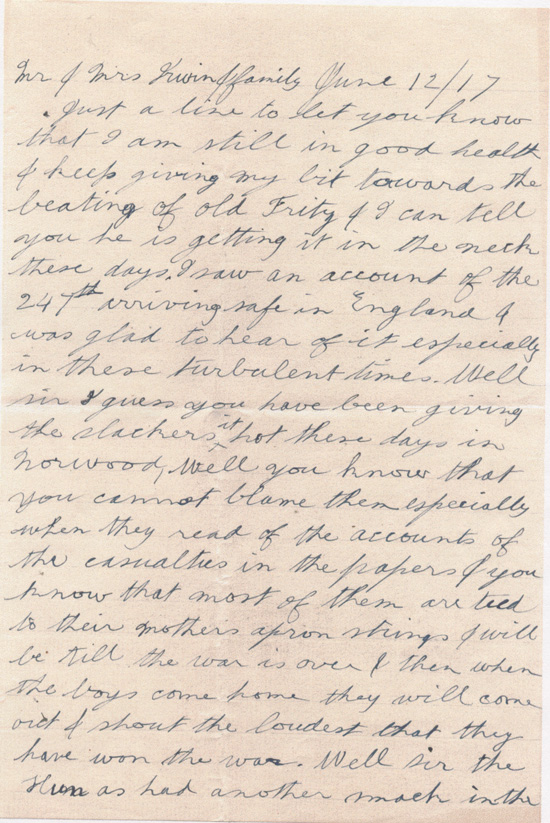 Mr & Mrs Irwin & family June 12/17
Just a line to let you know
that I am still in good health
& keep giving my bit towards the
beating of old Fritz & I can tell
you he is getting it in the neck
these days. I saw an account of the
247th arriving safe in England &
was glad to hear of it especially
in these turbulent times. Well
sir I guess you have been giving
the slackers it hot these days in
Norwood, Well you know that
you cannot blame them especially
when they read of the accounts of
the casualties in the papers & you
know that most of them are tied
to their mothers apron strings & will
be till the war is over & then when
the boys come home they will come
out & shout the loudest that they
have won the war. Well sir the
Hun as had another smack in the